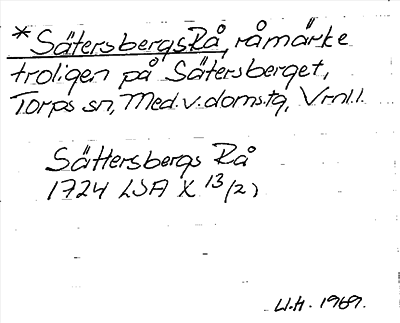 *SätersbergsRå, råmärke
troligen på Sätersberget,
Torps sn, Med.v.doms.tg, Vrnl.l.
Sättersbergs Rå
1724 LSA X 13/2)
W.H. 1969.